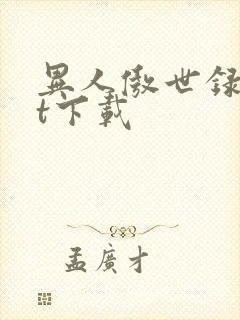 異人傲世録
t下載
孟廣才